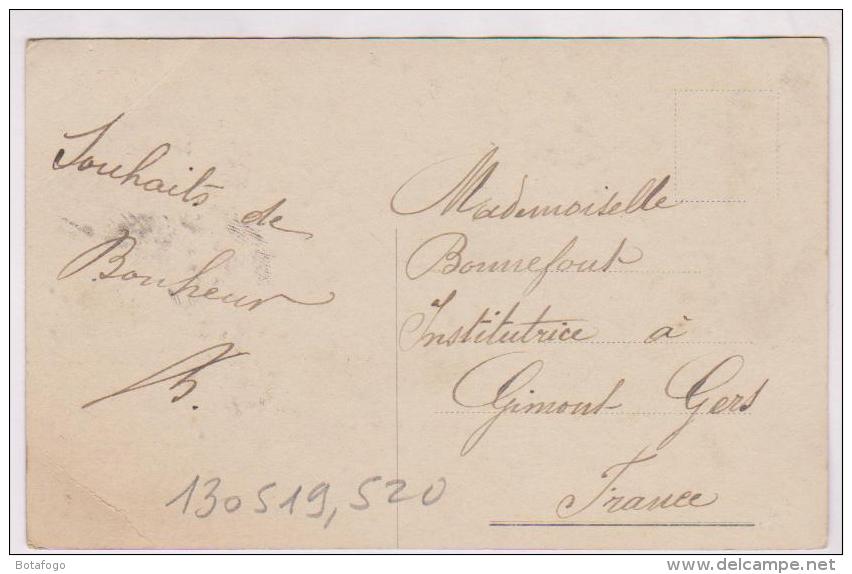 Souhaits de
Bonheur
Mademoiselle
Bonnefont
Institutrice à
Gimont Gers
France
130519,520
Botafogo
delcampe.net